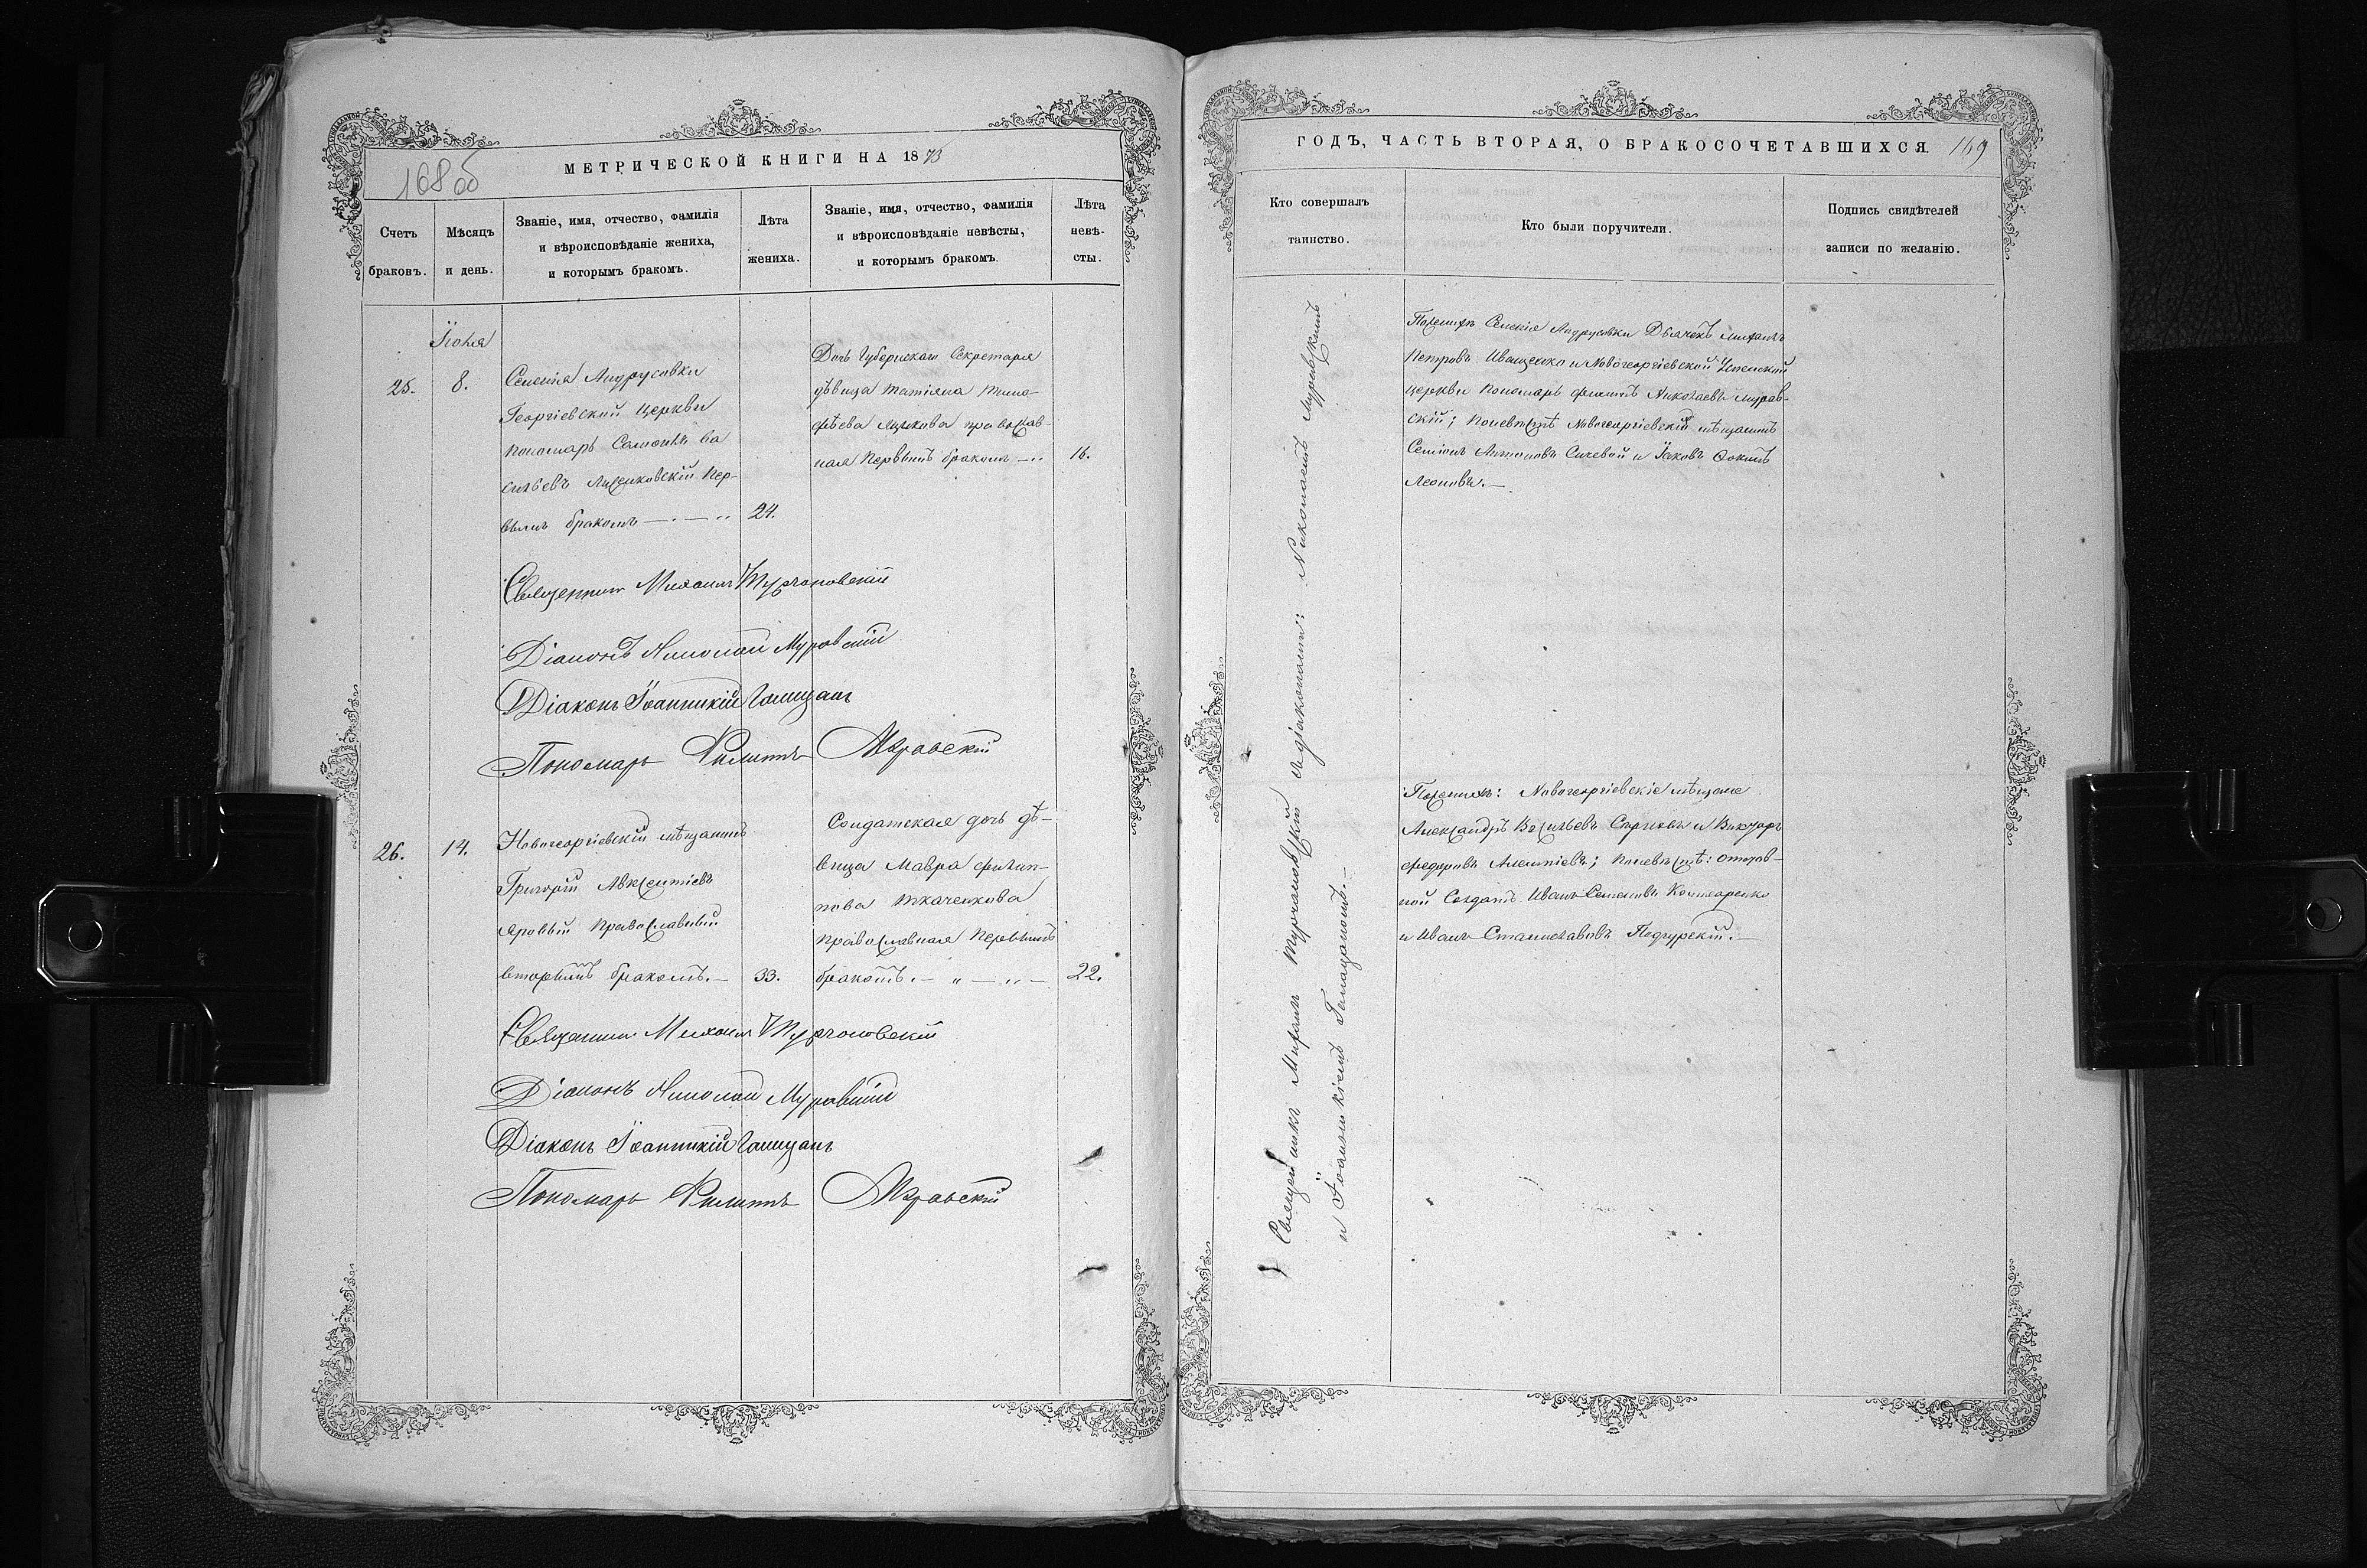 168 об
МЕТРИЧЕСКОЙ КНИГИ НА 1873
Счетъ браковъ.
Мѣсяцъ и день.
Званіе, имя, отчество, фамилія
и вѣроисповѣданіе жениха,
и которымъ бракомъ.
Лѣта
жениха.
Званіе, имя, отчество, фамилія
и вѣроисповѣданіе невѣсты,
и которымъ бракомъ.
Лѣта
невѣ-
сты.
Іюня
25.
8.
Селенія Андрусовки
Георгіевской церкви
пономарь Ва
сильевъ Пер-
вымъ бракомъ
24.
Дочь Губернскаго Секретаря
дѣвица Татіяна Тимо-
фѣева православ-
ная первымъ бракомъ
16.
Священникъ Михаилъ Турчановскій
Діаконъ Николай Муравскій
Діаконъ Іоанникій
Пономарь Филиппъ Муравскій
26.
14.
Новогеоргіевскій мѣщанинъ
Григорій Авксентіевъ
Яровый Православный
вторымъ бракомъ.
33.
Солдатская дочь дѣ-
вица Мавра Филип-
пова Ткаченкова
православная первымъ
бракомъ.
22.
Священникъ Михаилъ Турчановскій
Діаконъ Николай Муравскій
Діаконъ Іоанникій
Пономарь Филиппъ Муравскій
ГОДЪ, ЧАСТЬ ВТОРАЯ, О БРАКОСОЧЕТАВШИХСЯ.
169
Кто совершалъ
таинство.
Кто были поручители.
Подпись свидѣтелей
записи по желанію.
Священникъ Михаилъ Турчановскій съ діаконами: Николаемъ Муравскимъ
и Іоанникіемъ
По женихѣ Селенія Андрусовки Дьячекъ Михаилъ
Петровъ Иващенко и Новогеоргіевской Успенской
церкви пономарь Филиппъ Николаевъ Мурав-
скій; по невѣстѣ Новогеоргіевскій мѣщанинъ
Семіонъ Антоновъ Сичевой и Іаковъ
Леоновъ.
По женихѣ: Новогеоргіевскіе мѣщане
Александръ Васильевъ и Викторъ
Федоровъ; по невѣстѣ: отстав-
ной Солдатъ Иванъ Семеновъ
и Иванъ Станиславовъ Подгурскій.